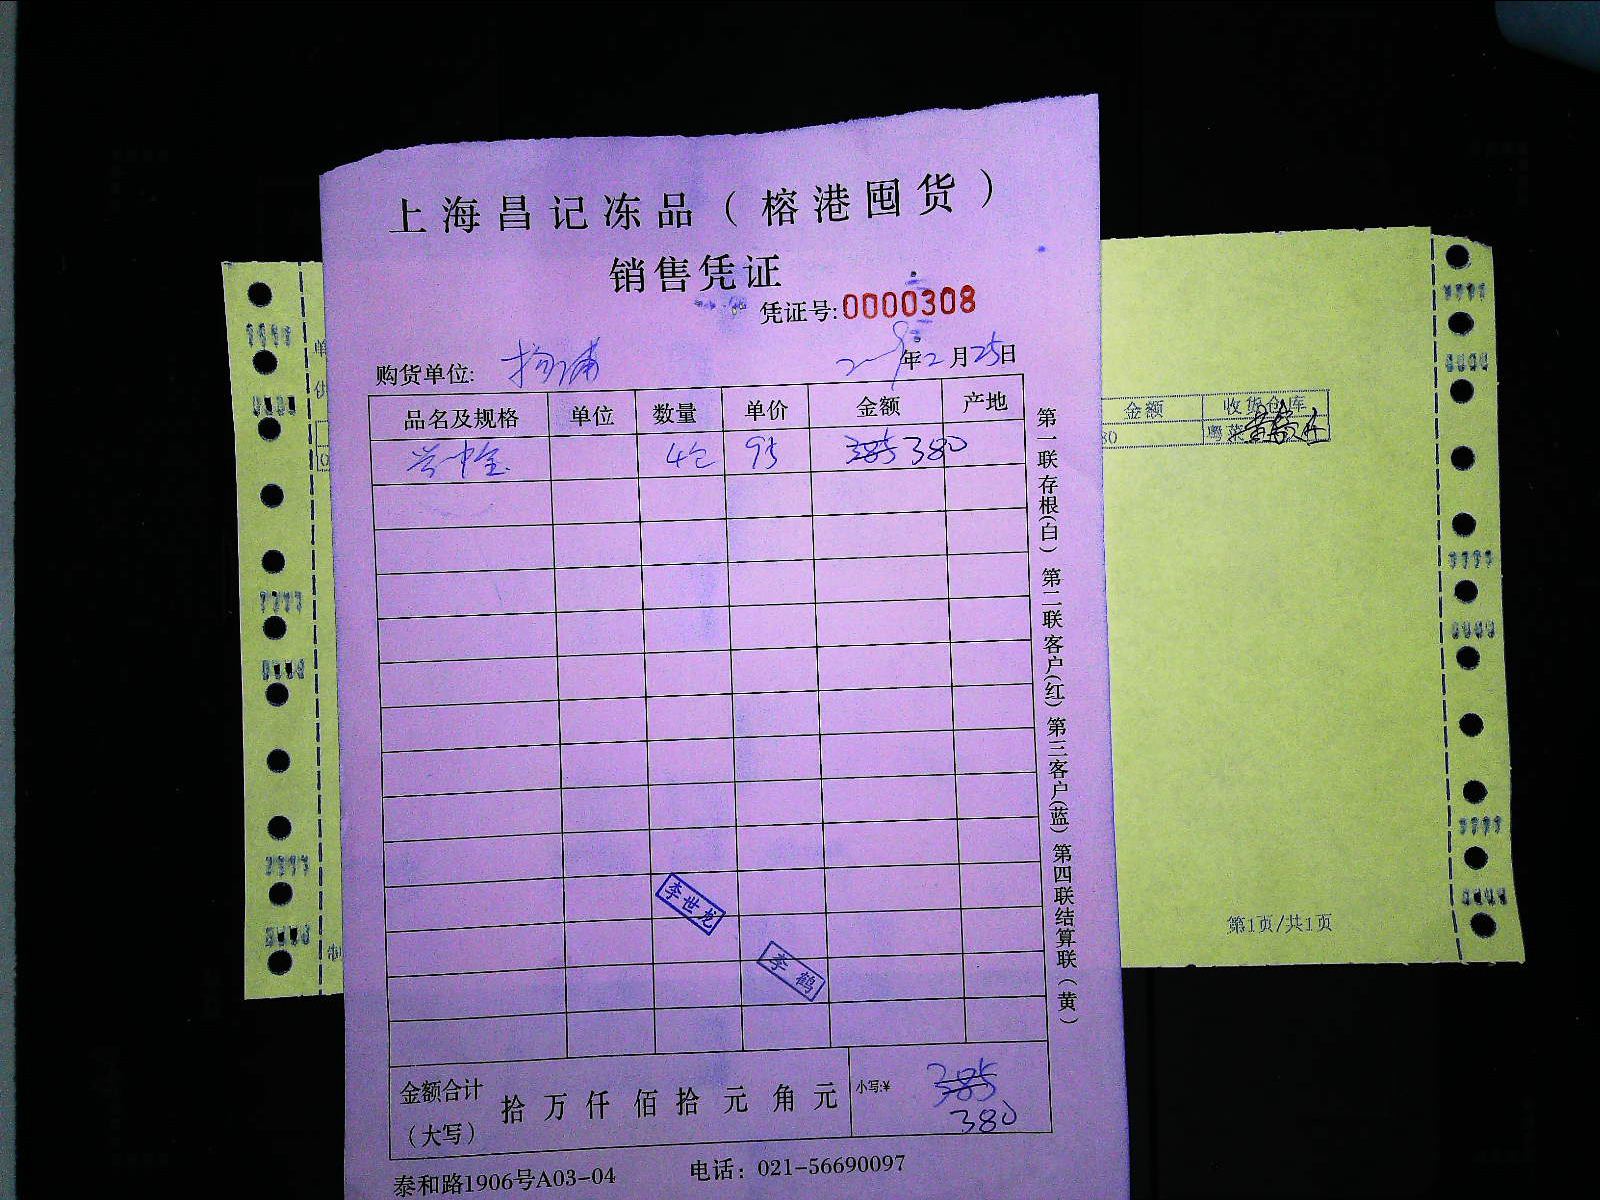 上海昌记冻品（榕港囤货）
销售凭证
凭证号:0000308
购货单位: 杨浦
年2月25日
品名及规格 单位 数量 单价 金额 产地
4包 95 385 380
第一联存根(白) 第二联客户(红) 第三客户(蓝) 第四联结算联(黄)
李世龙
李鹤
金额合计
(大写)
拾万仟佰拾元角元
小写:¥
385
380
泰和路1906号A03-04 电话: 021-56690097
金额 收货仓库
80 粤菜
第1页/共1页